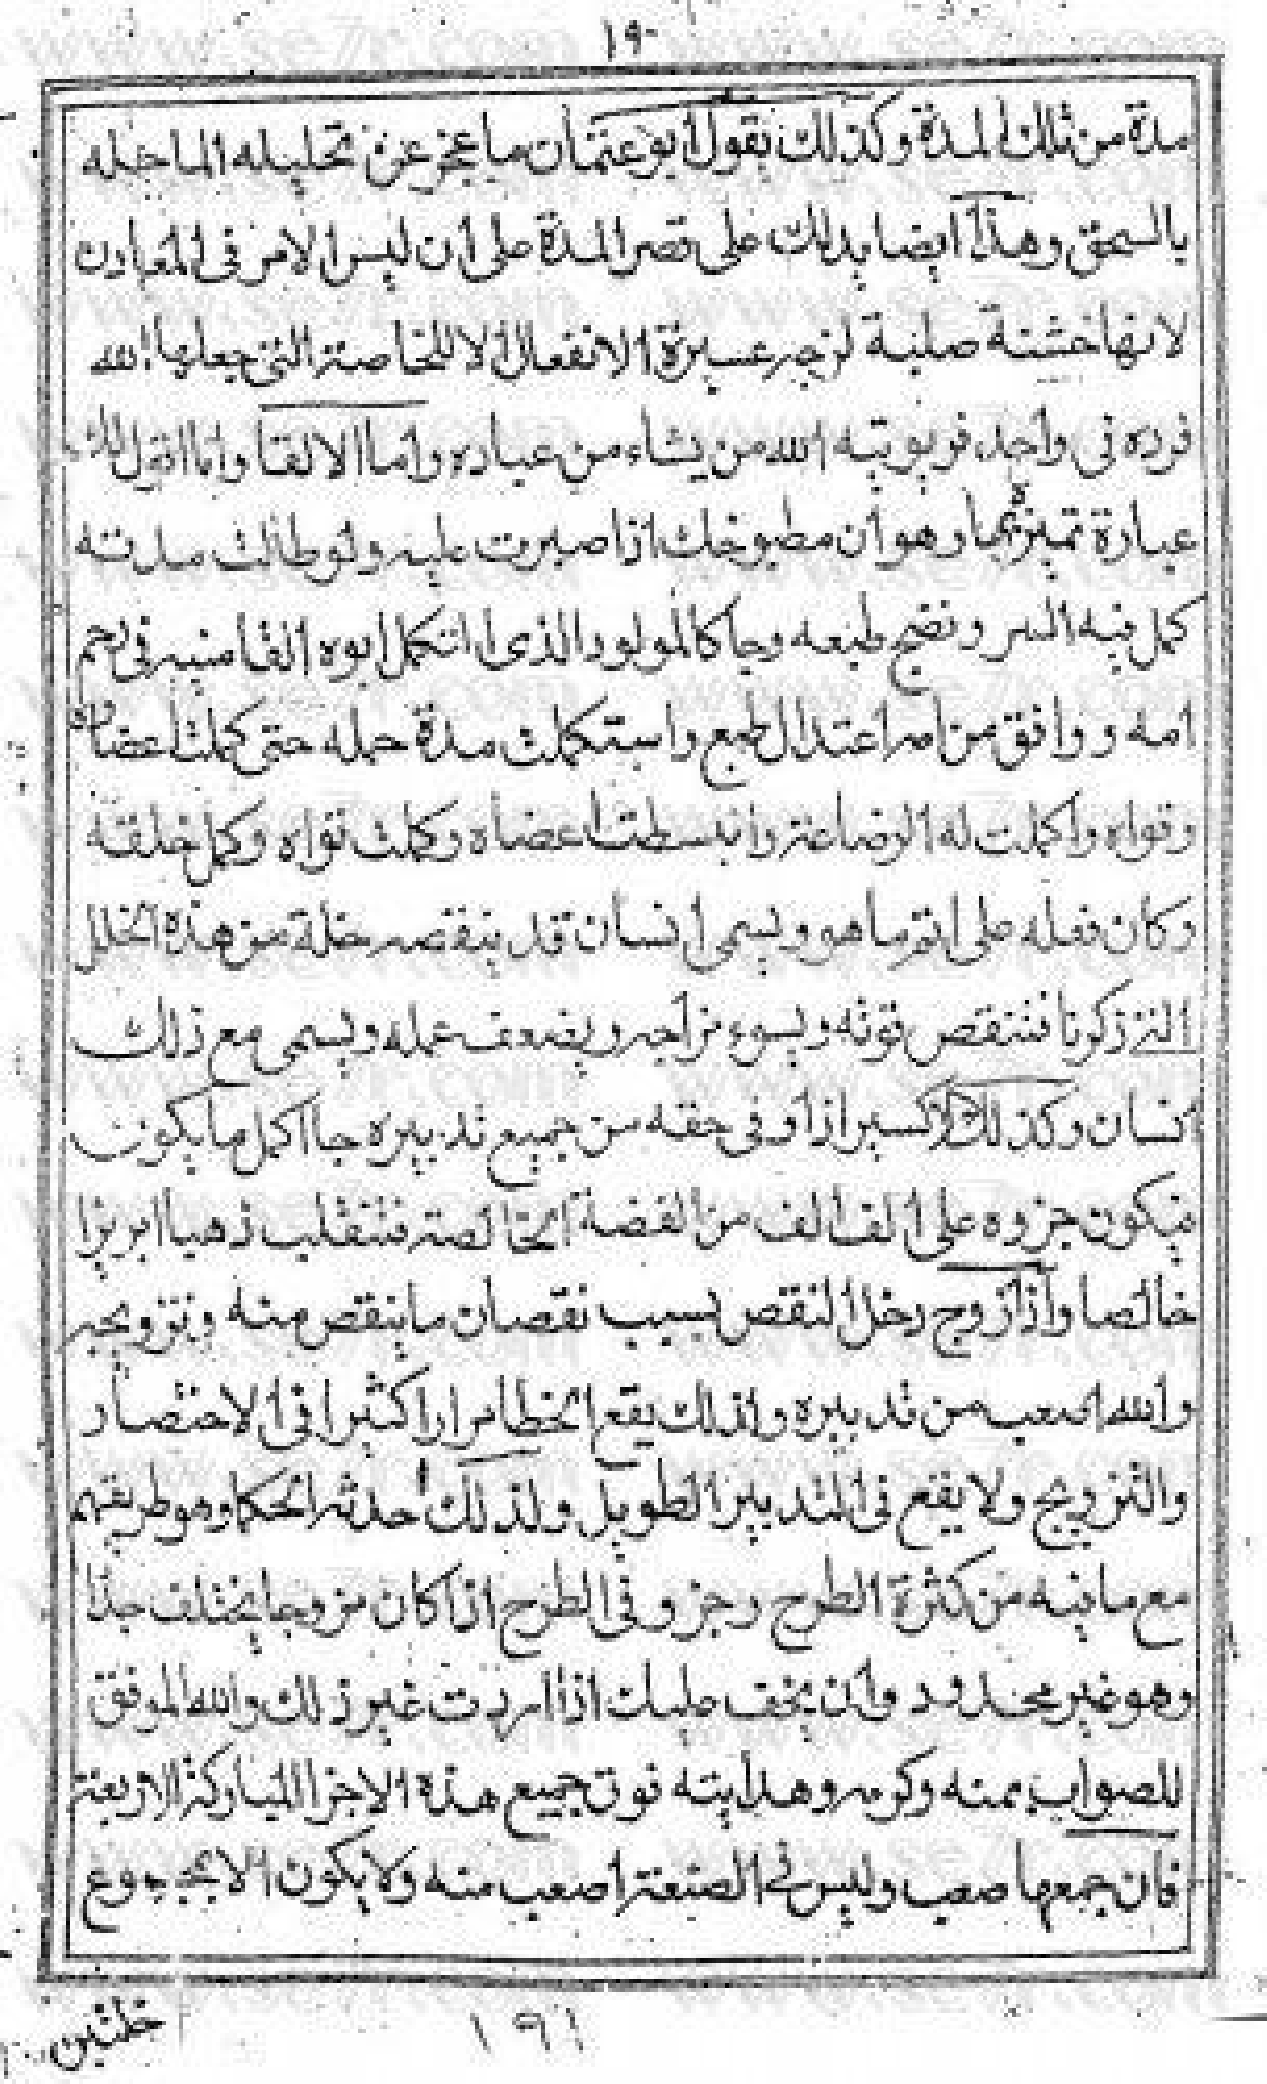 ١٩٠
مدة من تلك المدة وكذلك يقول أبو عثمان ما عجز عن تحليله الماء حله
بالسحق وهذا ايضا يدلك على قصر المدة على أن ليس الامر في المعادن
لانها خشنة صلبة لزجه عسيرة الانفعال الا للخاصة التي جعلها الله
فرده في واحد فريوتيه الله من يشاء من عباده واما الالقا وانا اقول لك
عبارة تميز بها وهو أن مطبوخك اذا صبرت عليه ولو طالت مدته
كمل فيه السر ونضج طبعه وجا كالمولود الذي اتكمل ابوه انفاسه في رحم
امه ووافق من امه اعتدال طبع واستكملت مدة حمله حتى كملت اعضاؤه
وقواه واكملت له الرضاعة وانبسطت اعضاه وكملت قواه وكمل خلقته
وكان فعله على اتم ما هو ويسمى انسان قد ينقصه خلة من هذه الخلل
التي ذكرنا فتنقص قوته ويسوء مزاجه ويضعف عمله ويسمى مع ذلك
انسان وكذلك الاكسير اذا وفى حقه من جميع تدبيره جا اكمل ما يكون
فيكون جزوه على الف الف من الفضة الخالصة فتنقلب ذهبا ابريزا
خالصا واذا زوج دخل النقص بسبب نقصان ما ينقص منه وتزويجه
والله اصعب من تدبيره ولذلك يقع الخطا مرارا كثيرا في الاختصار
والتزويج ولا يقع في التدبير الطويل ولذلك احدثه الحكما وهو طريقهم
مع ما فيه من كثرة الطرح وجزو في الطرح اذا كان مزوجا يختلف جدا
وهو غير محدود وان يخف عليك اذا اردت غير ذلك والله الموفق
للصواب بمنه وكرمه وهدايته فوق جميع هذه الاجزا المباركة الاربعة
فان جمعها صعب وليس في الصنعة اصعب منه ولا يكون الا بجوع
١٩١